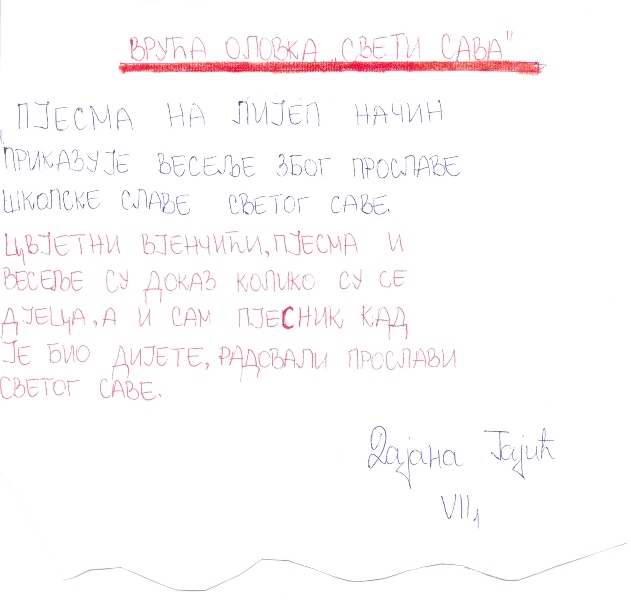 ВРУЋА ОЛОВКА „СВЕТИ САВА"
ПЈЕСМА НА ЛИЈЕП НАЧИН
ПРИКАЗУЈЕ ВЕСЕЉЕ ЗБОГ ПРОСЛАВЕ
ШКОЛСКЕ СЛАВЕ СВЕТОГ САВЕ.
ЦВЈЕТНИ ВЈЕНЧИЋИ, ПЈЕСМА И
ВЕСЕЉЕ СУ ДОКАЗ КОЛИКО СУ СЕ
ДЈЕЦА, А И САМ ПЈЕСНИК КАД
ЈЕ БИО ДИЈЕТЕ, РАДОВАЛИ ПРОСЛАВИ
СВЕТОГ САВЕ.
Дајана Гајић
VII₁